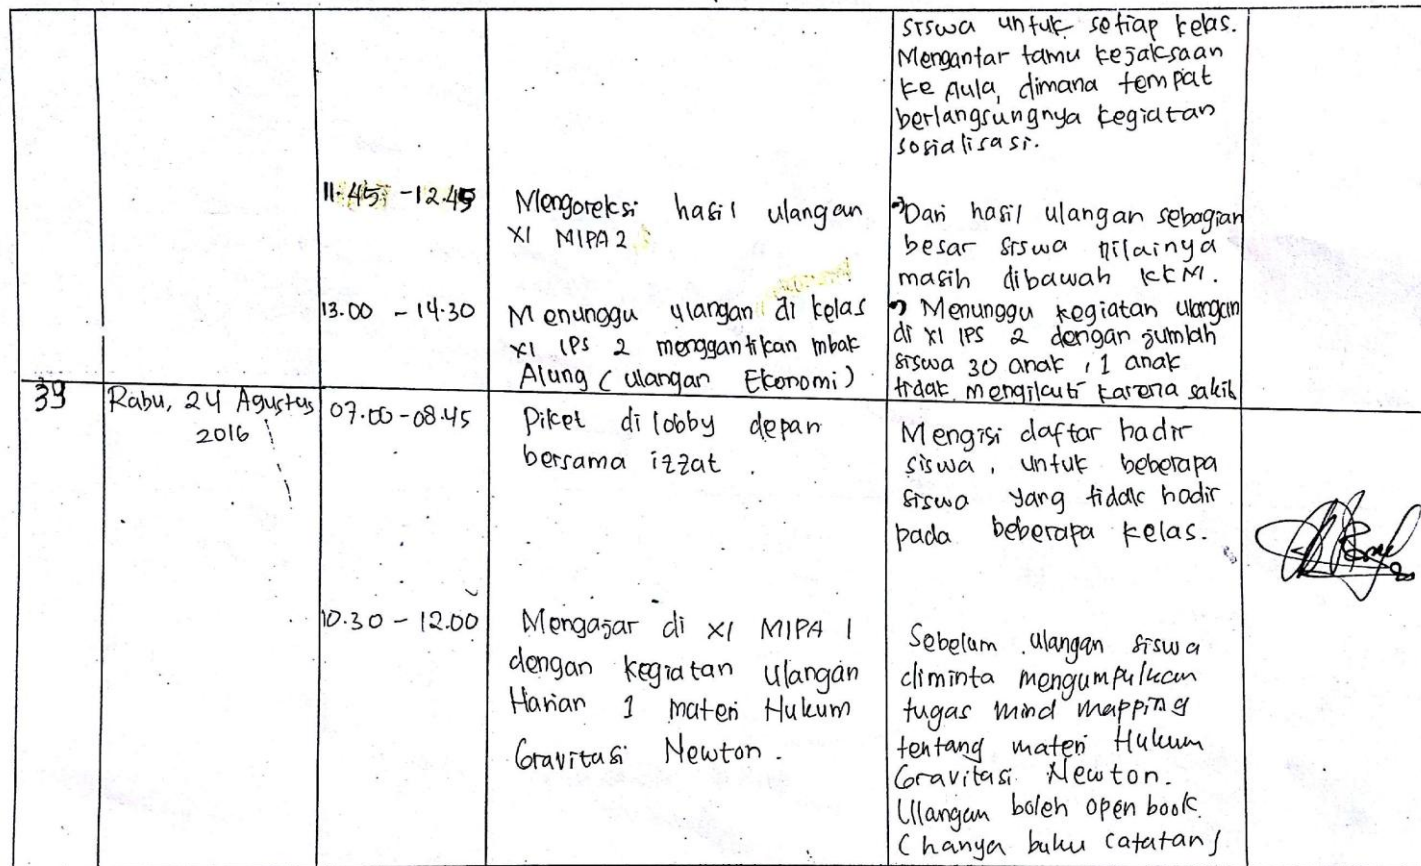 siswa untuk setiap kelas.
Mengantar tamu kejaksaan
ke Aula, dimana tempat
berlangsungnya kegiatan
sosialisasi.
11.45 - 12.45
Mengoreksi hasil ulangan
XI MIPA 2
Dari hasil ulangan sebagian
besar siswa nilainya
masih dibawah KKM.
13.00 - 14.30
Menunggu ulangan di kelas
XI IPS 2 menggantikan mbak
Alung (ulangan Ekonomi)
Menunggu kegiatan ulangan
di XI IPS 2 dengan jumlah
siswa 30 anak, 1 anak
tidak mengikuti karena sakit
39
Rabu, 24 Agustus
2016
07.00 - 08.45
Piket di lobby depan
bersama izzat.
Mengisi daftar hadir
siswa, untuk beberapa
siswa yang tidak hadir
pada beberapa kelas.
10.30 - 12.00
Mengajar di XI MIPA 1
dengan kegiatan Ulangan
Harian 1 materi Hukum
Gravitasi Newton.
Sebelum ulangan siswa
diminta mengumpulkan
tugas mind mapping
tentang materi Hukum
Gravitasi Newton.
Ulangan boleh open book
(hanya buku catatan)